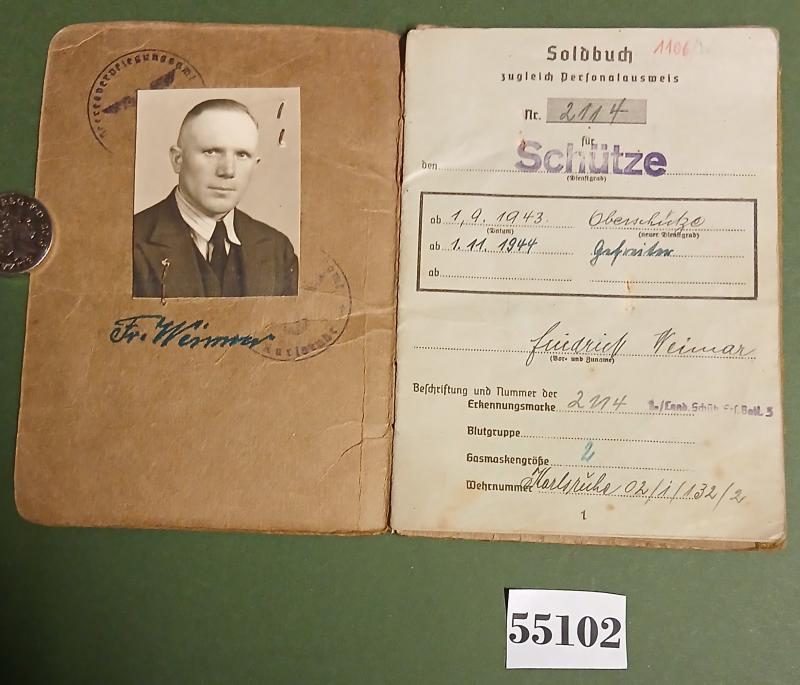 Heeresverpflegungsamt
Karlsruhe
Fr. Weimar
Soldbuch
1106
zugleich Personalausweis
Nr. 2114
für
den Schütze
(Dienstgrad)
ab 1.9.1943. Oberschütze
(Datum) (neuer Dienstgrad)
ab 1.11.1944 Gefreiter
ab
Friedrich Weimar
(Vor- und Zuname)
Beschriftung und Nummer der
Erkennungsmarke 2114 Land. Schütz. Ers. Batl. 5
Blutgruppe
Gasmaskengröße 2
Wehrnummer Karlsruhe 02/1/132/2
1
55102